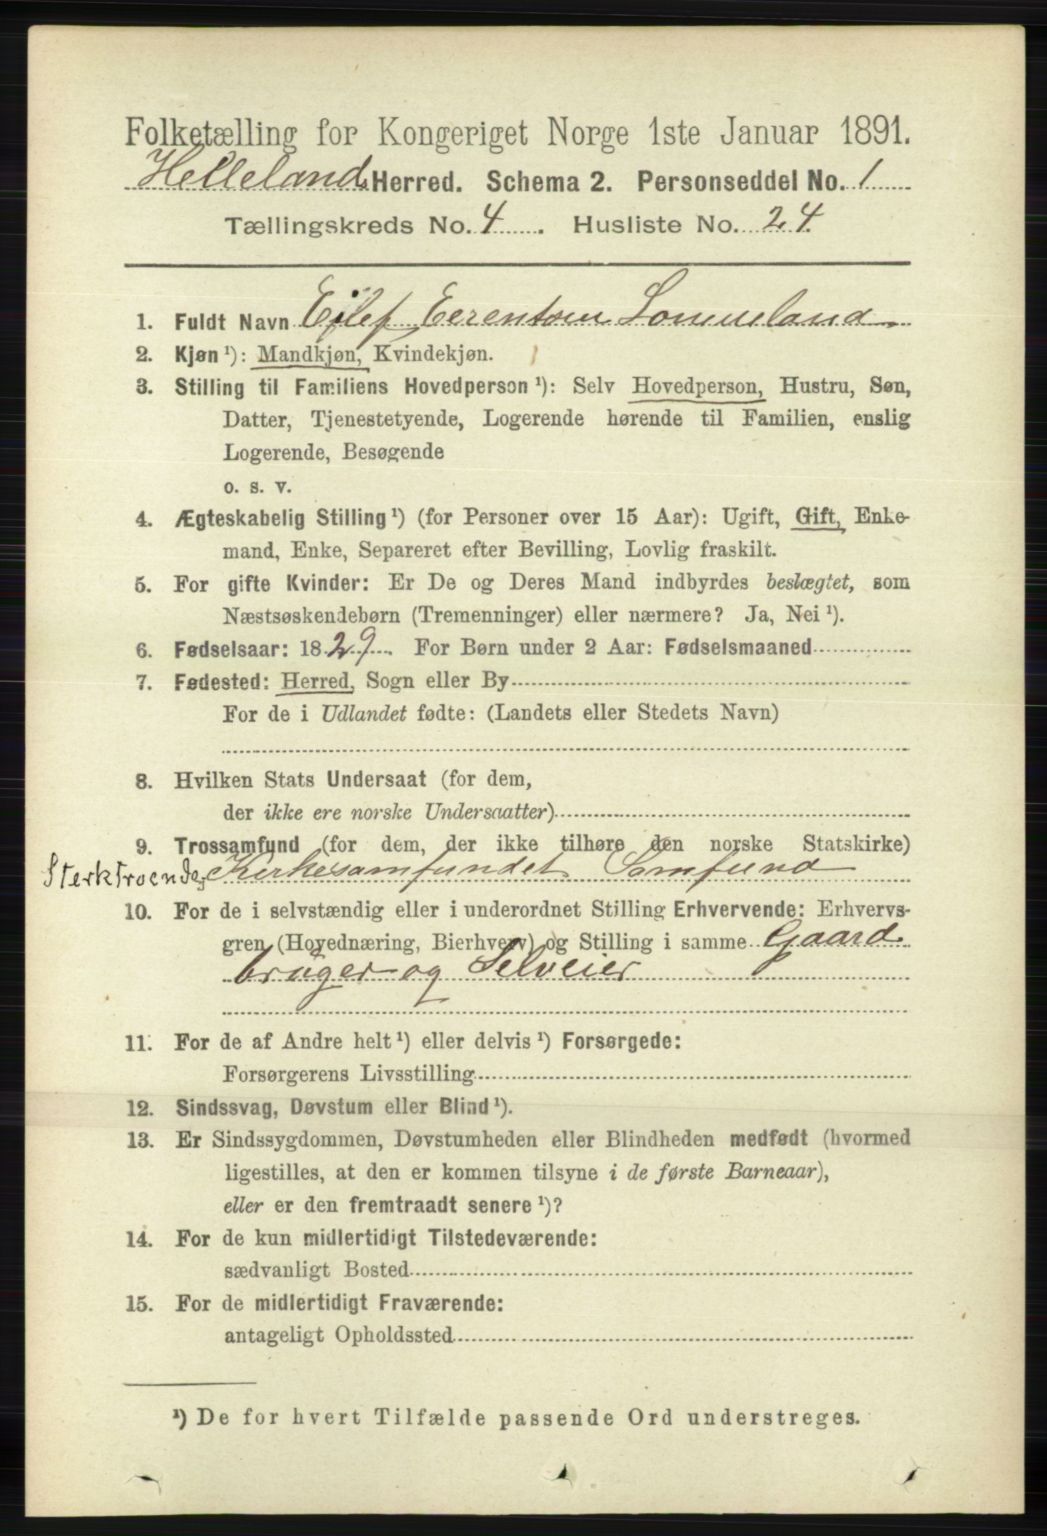 Folketælling for Kongeriget Norge 1ste Januar 1891.
Hellelands Herred. Schema 2. Personseddel No. 1
Tællingskreds No. 4. Husliste No. 24.
1. Fuldt Navn Eilef Eerentsen Sommeland
2. Kjøn ¹): Mandkjøn, Kvindekjøn.
3. Stilling til Familiens Hovedperson ¹): Selv Hovedperson, Hustru, Søn,
Datter, Tjenestetyende, Logerende hørende til Familien, enslig
Logerende, Besøgende
o. s. v.
4. Ægteskabelig Stilling ¹) (for Personer over 15 Aar): Ugift, Gift, Enke-
mand, Enke, Separeret efter Bevilling, Lovlig fraskilt.
5. For gifte Kvinder: Er De og Deres Mand indbyrdes beslægtet, som
Næstsøskendebørn (Tremenninger) eller nærmere? Ja, Nei ¹).
6. Fødselsaar: 1829. For Børn under 2 Aar: Fødselsmaaned
7. Fødested: Herred, Sogn eller By
For de i Udlandet fødte: (Landets eller Stedets Navn)
8. Hvilken Stats Undersaat (for dem,
der ikke ere norske Undersaatter)
9. Trossamfund (for dem, der ikke tilhøre den norske Statskirke)
Sterktroende Kirkesamfundet Samfund
10. For de i selvstændig eller i underordnet Stilling Erhvervende: Erhvervs-
gren (Hovednæring, Bierhverv) og Stilling i samme Gaard
bruger og Selveier
11. For de af Andre helt ¹) eller delvis ¹) Forsørgede:
Forsørgerens Livsstilling
12. Sindssvag, Døvstum eller Blind ¹).
13. Er Sindssygdommen, Døvstumheden eller Blindheden medfødt (hvormed
ligestilles, at den er kommen tilsyne i de første Barneaar),
eller er den fremtraadt senere ¹)?
14. For de kun midlertidigt Tilstedeværende:
sædvanligt Bosted
15. For de midlertidigt Fraværende:
antageligt Opholdssted
¹) De for hvert Tilfælde passende Ord understreges.